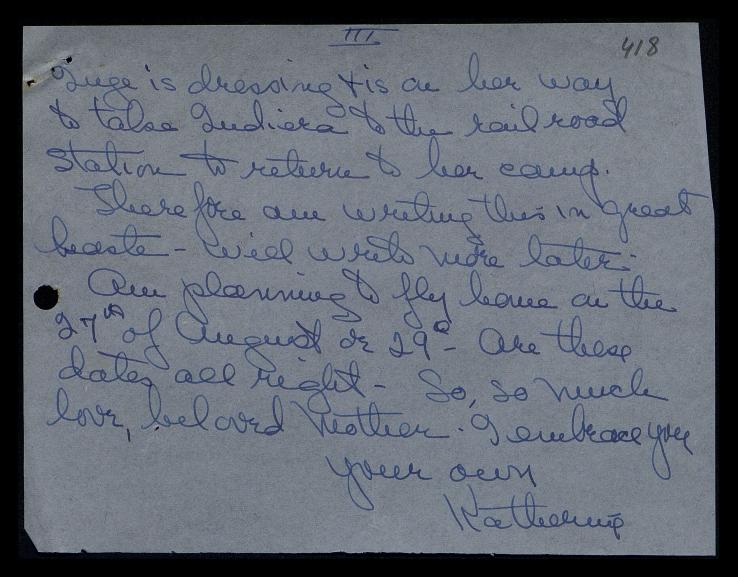 III
418
Inge is dressing & is on her way
to take Indiera to the railroad
station to return to her camp.
Therefore am writing this in great
haste - will write more later.
Am planning to fly home on the
27th of August or 29th - Are these
dates all right - So, so much
love, beloved Mother. I embrace you
your own
Katherine